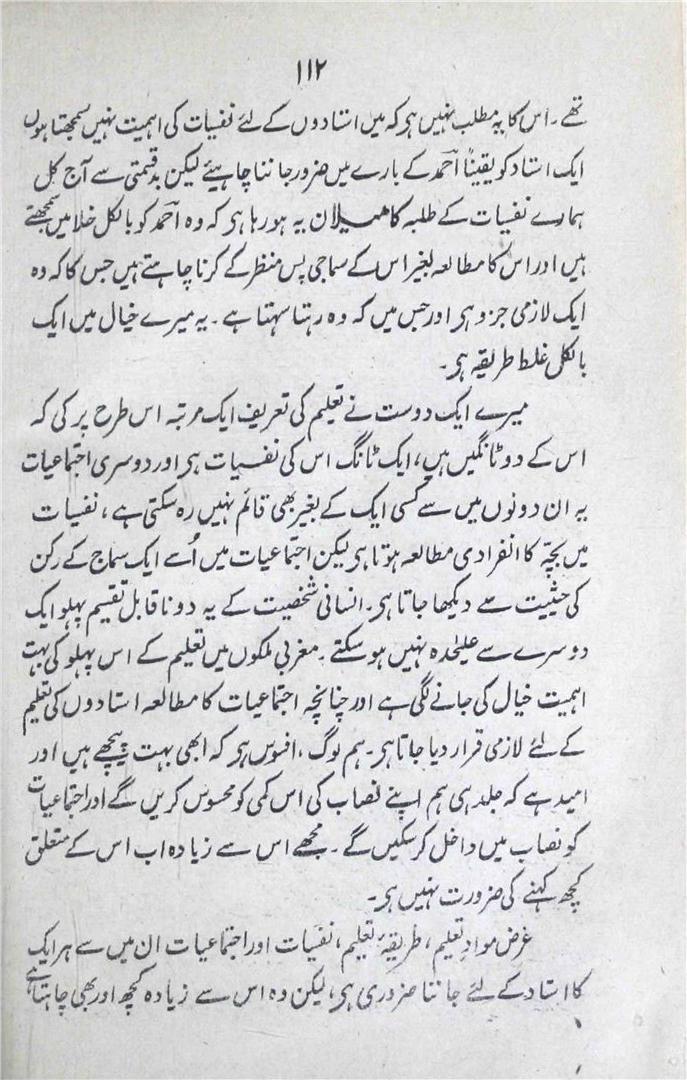 ۱۱۲
تھے۔ اس کا یہ مطلب نہیں ہر کہ میں استادوں کے لئے نفسیات کی اہمیت نہیں سمجھتا ہوں
ایک استاد کو یقیناً احمد کے بارے میں ضرور جاننا چاہیئے لیکن بدقسمتی سے آج کل
ہمارے نفسیات کے طلبہ کا میلان یہ ہو رہا ہر کہ وہ احمد کو بالکل خلا میں سمجھتے
ہیں اور اس کا مطالعہ بغیر اس کے سماجی پس منظر کے کرنا چاہتے ہیں جس کا کہ وہ
ایک لازمی جزو ہر اور جس میں کہ وہ رہتا سہتا ہے۔ یہ میرے خیال میں ایک
بالکل غلط طریقہ ہر۔
میرے ایک دوست نے تعلیم کی تعریف ایک مرتبہ اس طرح پر کی کہ
اس کے دو ٹانگیں ہیں، ایک ٹانگ اس کی نفسیات ہر اور دوسری اجتماعیات
یہ ان دونوں میں سے کسی ایک کے بغیر بھی قائم نہیں رہ سکتی ہے، نفسیات
میں بچّہ کا انفرادی مطالعہ ہوتا ہر لیکن اجتماعیات میں اُسے ایک سماج کے رکن
کی حیثیت سے دیکھا جاتا ہر۔ انسانی شخصیت کے یہ دو ناقابل تقسیم پہلو ایک
دوسرے سے علیٰحدہ نہیں ہو سکتے۔ مغربی ملکوں میں تعلیم کے اس پہلو کی بہت
اہمیت خیال کی جانے لگی ہے اور چنانچہ اجتماعیات کا مطالعہ استادوں کی تعلیم
کے لئے لازمی قرار دیا جاتا ہر۔ ہم لوگ، افسوس ہر کہ ابھی بہت پیچھے ہیں اور
امید ہے کہ جلد ہی ہم اپنے نصاب کی اس کمی کو محسوس کریں گے اور اجتماعیات
کو نصاب میں داخل کر سکیں گے۔ مجھے اس سے زیادہ اب اس کے متعلق
کچھ کہنے کی ضرورت نہیں ہر۔
غرض موادِ تعلیم، طریقۂ تعلیم، نفسیات اور اجتماعیات ان میں سے ہر ایک
کا استاد کے لئے جاننا ضروری ہر، لیکن وہ اس سے زیادہ کچھ اور بھی چاہتا ہے